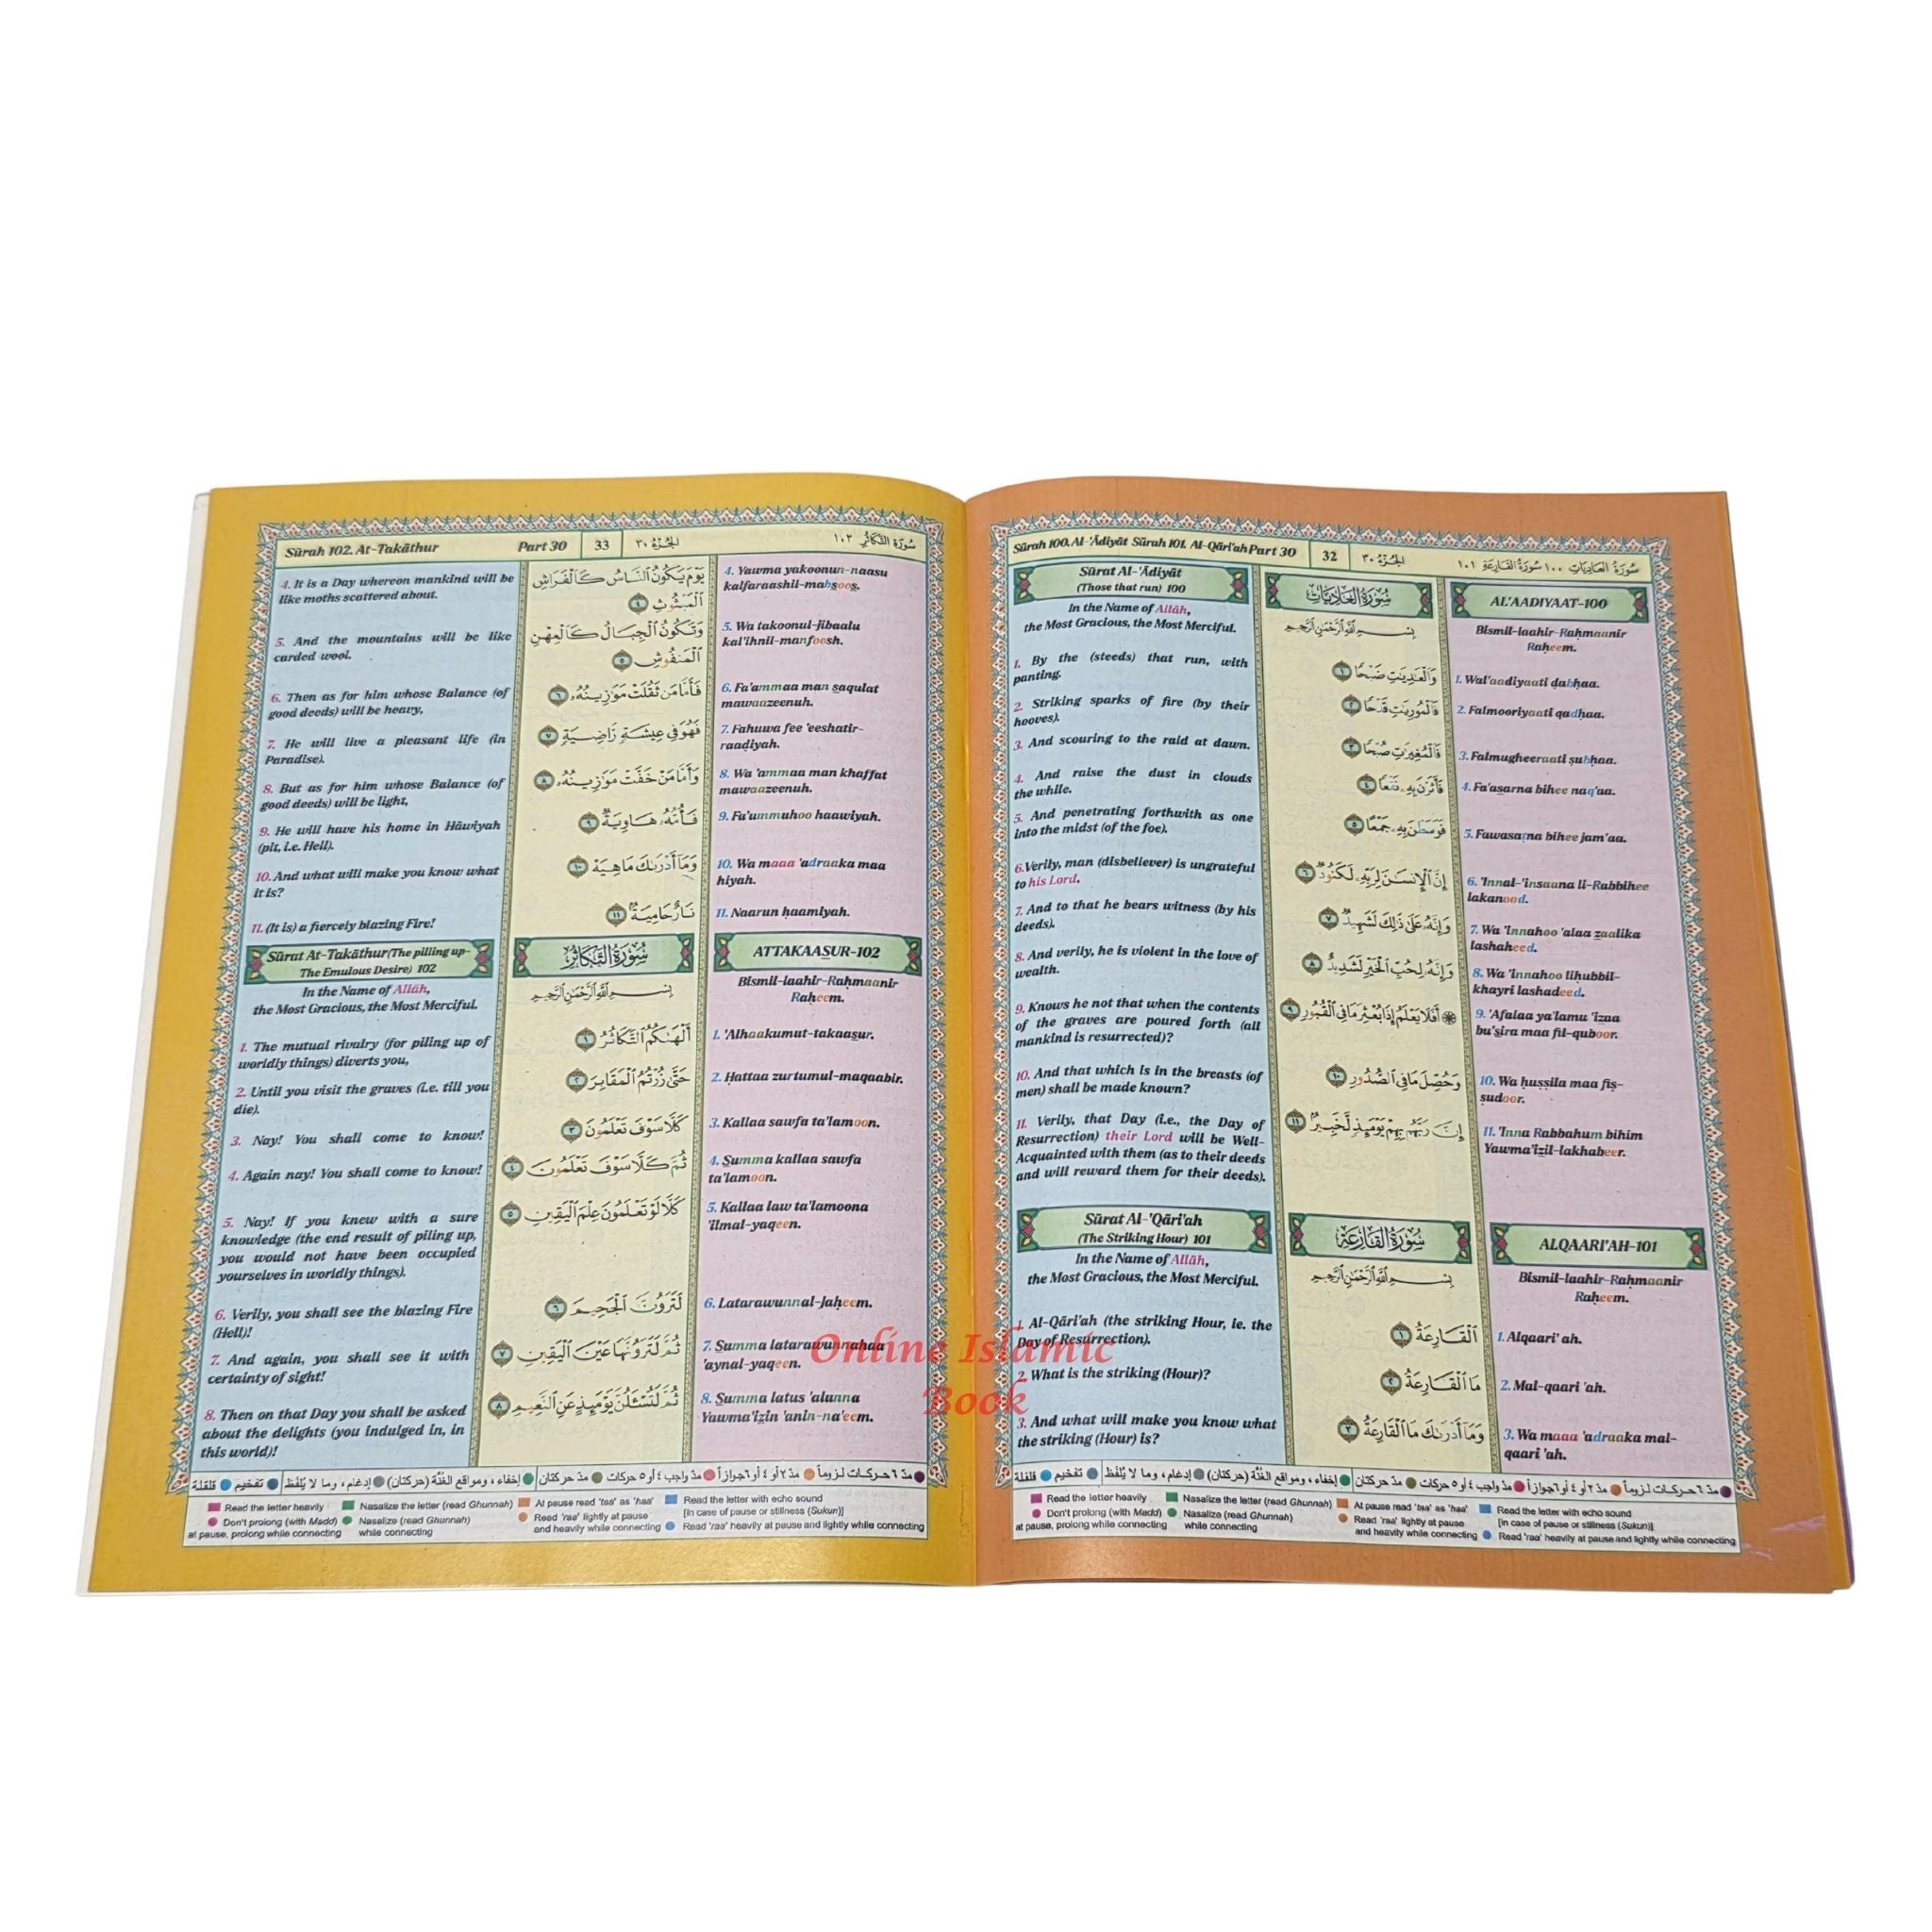 Sūrah 100. Al-'Ādiyāt Sūrah 101. Al-Qāri'ah Part 30
32
الجزء ٣٠
سورة العاديات ١٠٠ سورة القارعة ١٠١
Sūrat Al-'Ādiyāt
(Those that run) 100
In the Name of Allāh,
the Most Gracious, the Most Merciful.
1. By the (steeds) that run, with
panting.
2. Striking sparks of fire (by their
hooves).
3. And scouring to the raid at dawn.
4. And raise the dust in clouds
the while.
5. And penetrating forthwith as one
into the midst (of the foe).
6.Verily, man (disbeliever) is ungrateful
to his Lord.
7. And to that he bears witness (by his
deeds).
8. And verily, he is violent in the love of
wealth.
9. Knows he not that when the contents
of the graves are poured forth (all
mankind is resurrected)?
10. And that which is in the breasts (of
men) shall be made known?
11. Verily, that Day (i.e., the Day of
Resurrection) their Lord will be Well-
Acquainted with them (as to their deeds
and will reward them for their deeds).
Sūrat Al-'Qāri'ah
(The Striking Hour) 101
In the Name of Allāh,
the Most Gracious, the Most Merciful.
1. Al-Qāri'ah (the striking Hour, ie. the
Day of Resurrection).
2. What is the striking (Hour)?
3. And what will make you know what
the striking (Hour) is?
سورة العاديات
بسم الله الرحمن الرحيم
والعديت ضبحا ١
فالموريت قدحا ٢
فالمغيرت صبحا ٣
فأثرن به نقعا ٤
فوسطن به جمعا ٥
إن الإنسن لربه لكنود ٦
وإنه على ذلك لشهيد ٧
وإنه لحب الخير لشديد ٨
۞ أفلا يعلم إذا بعثر ما في القبور ٩
وحصل ما في الصدور ١٠
إن ربهم بهم يومئذ لخبير ١١
سورة القارعة
بسم الله الرحمن الرحيم
القارعة ١
ما القارعة ٢
وما أدرىك ما القارعة ٣
AL'AADIYAAT-100
Bismil-laahir-Raḥmaanir
Raḥeem.
1. Wal'aadiyaati ḍabḥaa.
2. Falmooriyaati qadḥaa.
3. Falmugheeraati ṣubḥaa.
4. Fa'as̱arna bihee naq'aa.
5. Fawasaṭna bihee jam'aa.
6. 'Innal-'insaana li-Rabbihee
lakanood.
7. Wa 'innahoo 'alaa ẕaalika
lashaheed.
8. Wa 'innahoo liḥubbil-
khayri lashadeed.
9. 'Afalaa ya'lamu 'iẕaa
bu's̱ira maa fil-quboor.
10. Wa ḥuṣṣila maa fiṣ-
ṣudoor.
11. 'Inna Rabbahum bihim
Yawma'iẕil-lakhabeer.
ALQAARI'AH-101
Bismil-laahir-Raḥmaanir
Raḥeem.
1. Alqaari' ah.
2. Mal-qaari 'ah.
3. Wa maaa 'adraaka mal-
qaari 'ah.
مدّ ٦ حركات لزوماً مدّ ٢ أو ٤ أو ٦ جوازاً مدّ واجب ٤ أو ٥ حركات مدّ حركتان إخفاء، ومواقع الغنّة (حركتان) إدغام، وما لا يُلفَظ تفخيم قلقلة
Read the letter heavily
Nasalize the letter (read Ghunnah)
At pause read 'taa' as 'haa'
Read the letter with echo sound
[in case of pause or stillness (Sukun)]
Don't prolong (with Madd)
at pause, prolong while connecting
Nasalize (read Ghunnah)
while connecting
Read 'raa' lightly at pause
and heavily while connecting
Read 'raa' heavily at pause and lightly while connecting
Sūrah 102. At-Takāthur
Part 30
33
الجزء ٣٠
سورة التكاثر ١٠٢
4. It is a Day whereon mankind will be
like moths scattered about.
5. And the mountains will be like
carded wool.
6. Then as for him whose Balance (of
good deeds) will be heavy,
7. He will live a pleasant life (in
Paradise).
8. But as for him whose Balance (of
good deeds) will be light,
9. He will have his home in Hāwiyah
(pit, i.e. Hell).
10. And what will make you know what
it is?
11. (It is) a fiercely blazing Fire!
Sūrat At-Takāthur(The pilling up-
The Emulous Desire) 102
In the Name of Allāh,
the Most Gracious, the Most Merciful.
1. The mutual rivalry (for piling up of
worldly things) diverts you,
2. Until you visit the graves (i.e. till you
die).
3. Nay! You shall come to know!
4. Again nay! You shall come to know!
5. Nay! If you knew with a sure
knowledge (the end result of piling up,
you would not have been occupied
yourselves in worldly things).
6. Verily, you shall see the blazing Fire
(Hell)!
7. And again, you shall see it with
certainty of sight!
8. Then on that Day you shall be asked
about the delights (you indulged in, in
this world)!
يوم يكون الناس كالفراش
المبثوث ٤
وتكون الجبال كالعهن
المنفوش ٥
فأما من ثقلت موزينه ٦
فهو في عيشة راضية ٧
وأما من خفت موزينه ٨
فأمه هاوية ٩
وما أدرىك ما هيه ١٠
نار حامية ١١
سورة التكاثر
بسم الله الرحمن الرحيم
ألهىكم التكاثر ١
حتى زرتم المقابر ٢
كلا سوف تعلمون ٣
ثم كلا سوف تعلمون ٤
كلا لو تعلمون علم اليقين ٥
لترون الجحيم ٦
ثم لترونها عين اليقين ٧
ثم لتسئلن يومئذ عن النعيم ٨
4. Yawma yakoonun-naasu
kalfaraashil-mabs̱oos̱.
5. Wa takoonul-jibaalu
kal'ihnil-manfoosh.
6. Fa'ammaa man s̱aqulat
mawaazeenuh.
7. Fahuwa fee 'eeshatir-
raaḍiyah.
8. Wa 'ammaa man khaffat
mawaazeenuh.
9. Fa'ummuhoo haawiyah.
10. Wa maaa 'adraaka maa
hiyah.
11. Naarun ḥaamiyah.
ATTAKAAS̱UR-102
Bismil-laahir-Raḥmaanir
Raḥeem.
1. 'Alhaakumut-takaas̱ur.
2. Ḥattaa zurtumul-maqaabir.
3. Kallaa sawfa ta'lamoon.
4. S̱umma kallaa sawfa
ta'lamoon.
5. Kallaa law ta'lamoona
'ilmal-yaqeen.
6. Latarawunnal-jaḥeem.
7. S̱umma latarawunnahaa
'aynal-yaqeen.
8. S̱umma latus 'alunna
Yawma'iẕin 'anin-na'eem.
مدّ ٦ حركات لزوماً مدّ ٢ أو ٤ أو ٦ جوازاً مدّ واجب ٤ أو ٥ حركات مدّ حركتان إخفاء، ومواقع الغنّة (حركتان) إدغام، وما لا يُلفَظ تفخيم قلقلة
Read the letter heavily
Nasalize the letter (read Ghunnah)
At pause read 'taa' as 'haa'
Read the letter with echo sound
[in case of pause or stillness (Sukun)]
Don't prolong (with Madd)
at pause, prolong while connecting
Nasalize (read Ghunnah)
while connecting
Read 'raa' lightly at pause
and heavily while connecting
Read 'raa' heavily at pause and lightly while connecting
Online Islamic
Book